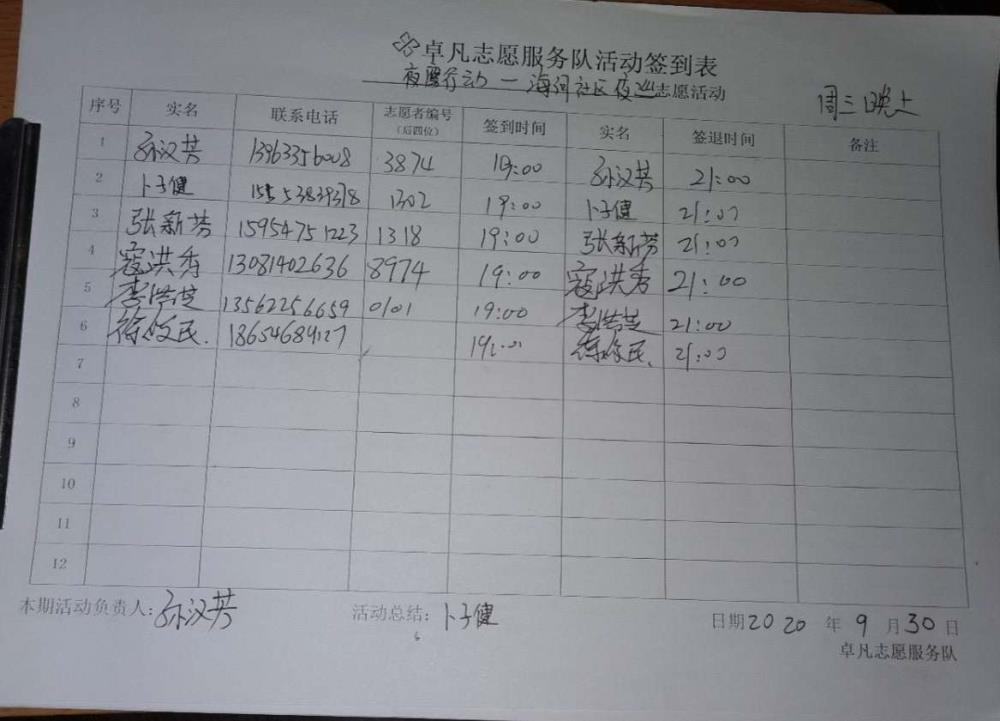 卓凡志愿服务队活动签到表
夜暖行动一海河社区夜巡志愿活动 周三晚上
序号 实名 联系电话 志愿者编号（后四位） 签到时间 实名 签退时间 备注
1 孙汉芳 13963356008 3874 19:00 孙汉芳 21:00
2 卜子健 1302 19:00 卜子健 21:00
3 张新芳 15954751223 1318 19:00 张新芳 21:00
4 寇洪秀 13081402636 8974 19:00 寇洪秀 21:00
5 13562256659 0101 19:00 21:00
6 19:00 21:00
7
8
9
10
11
12
本期活动负责人：孙汉芳 活动总结：卜子健 日期2020年9月30日
卓凡志愿服务队